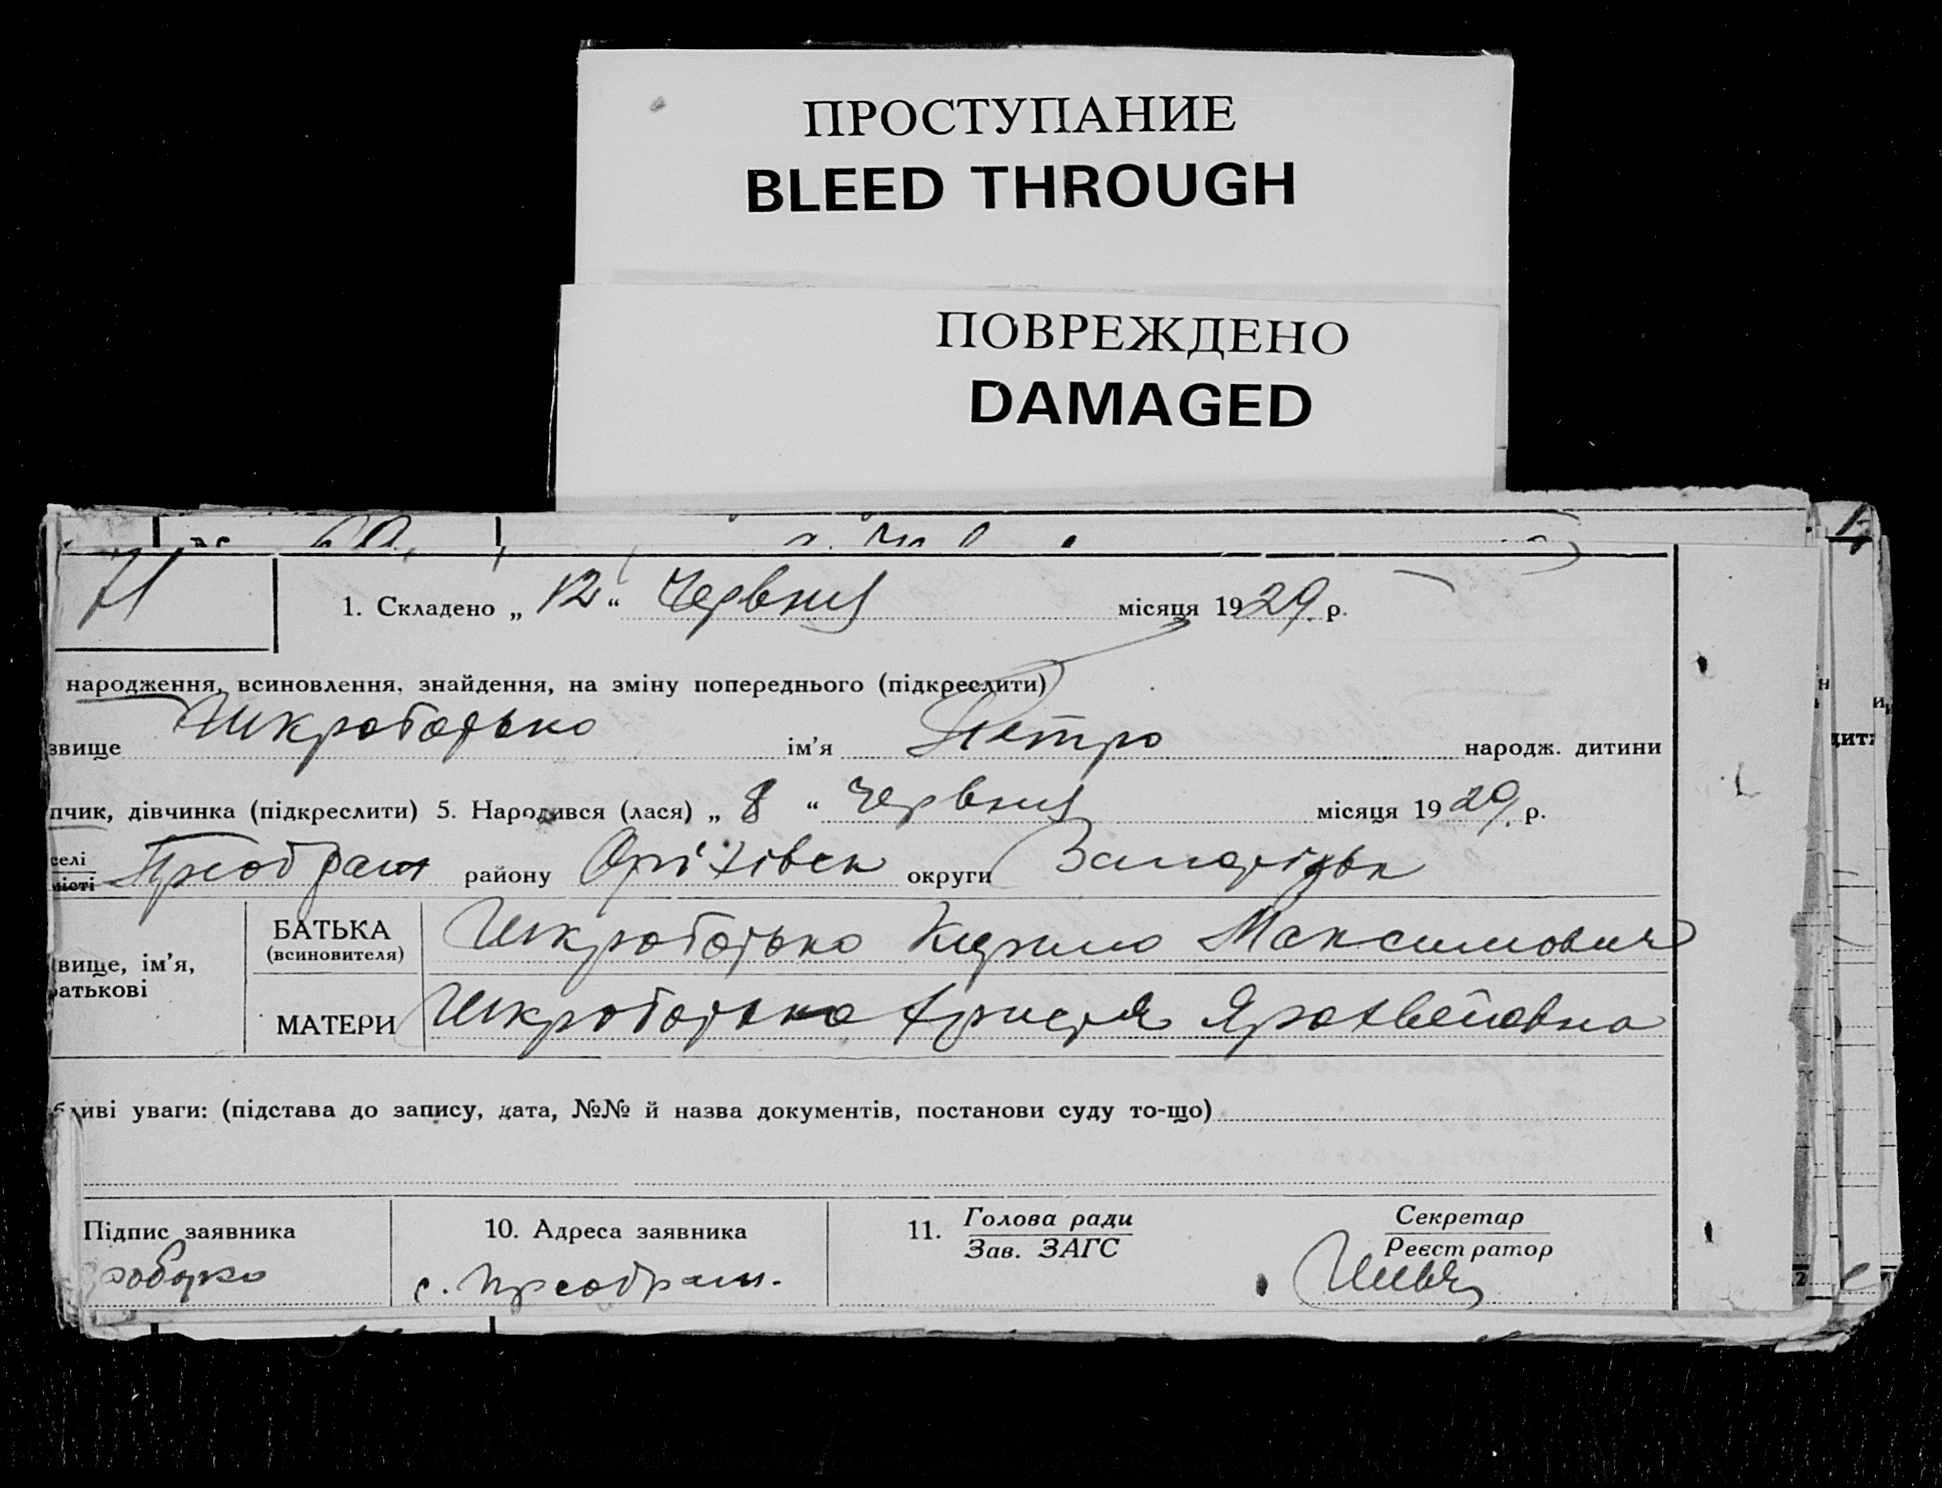 ПРОСТУПАНИЕ
BLEED THROUGH
ПОВРЕЖДЕНО
DAMAGED
71
1. Складено „ 12 “ Червня місяця 1929 р.
народження, всиновлення, знайдення, на зміну попереднього (підкреслити)
звище Шкроботько ім'я Петро народж. дитини
пчик, дівчинка (підкреслити) 5. Народився (лася) „ 8 “ Червня місяця 1929 р.
селі
місті Преображ району Оріхівськ округи Запорізьк
вище, ім'я,
атькові
БАТЬКА
(всиновителя)
Шкроботько Кирило Максимович
МАТЕРИ
Шкроботько Христя
ливі уваги: (підстава до запису, дата, №№ й назва документів, постанови суду то-що)
Підпис заявника
10. Адреса заявника
с. Преображ.
11. Голова ради
Зав. ЗАГС
Секретар
Реєстратор